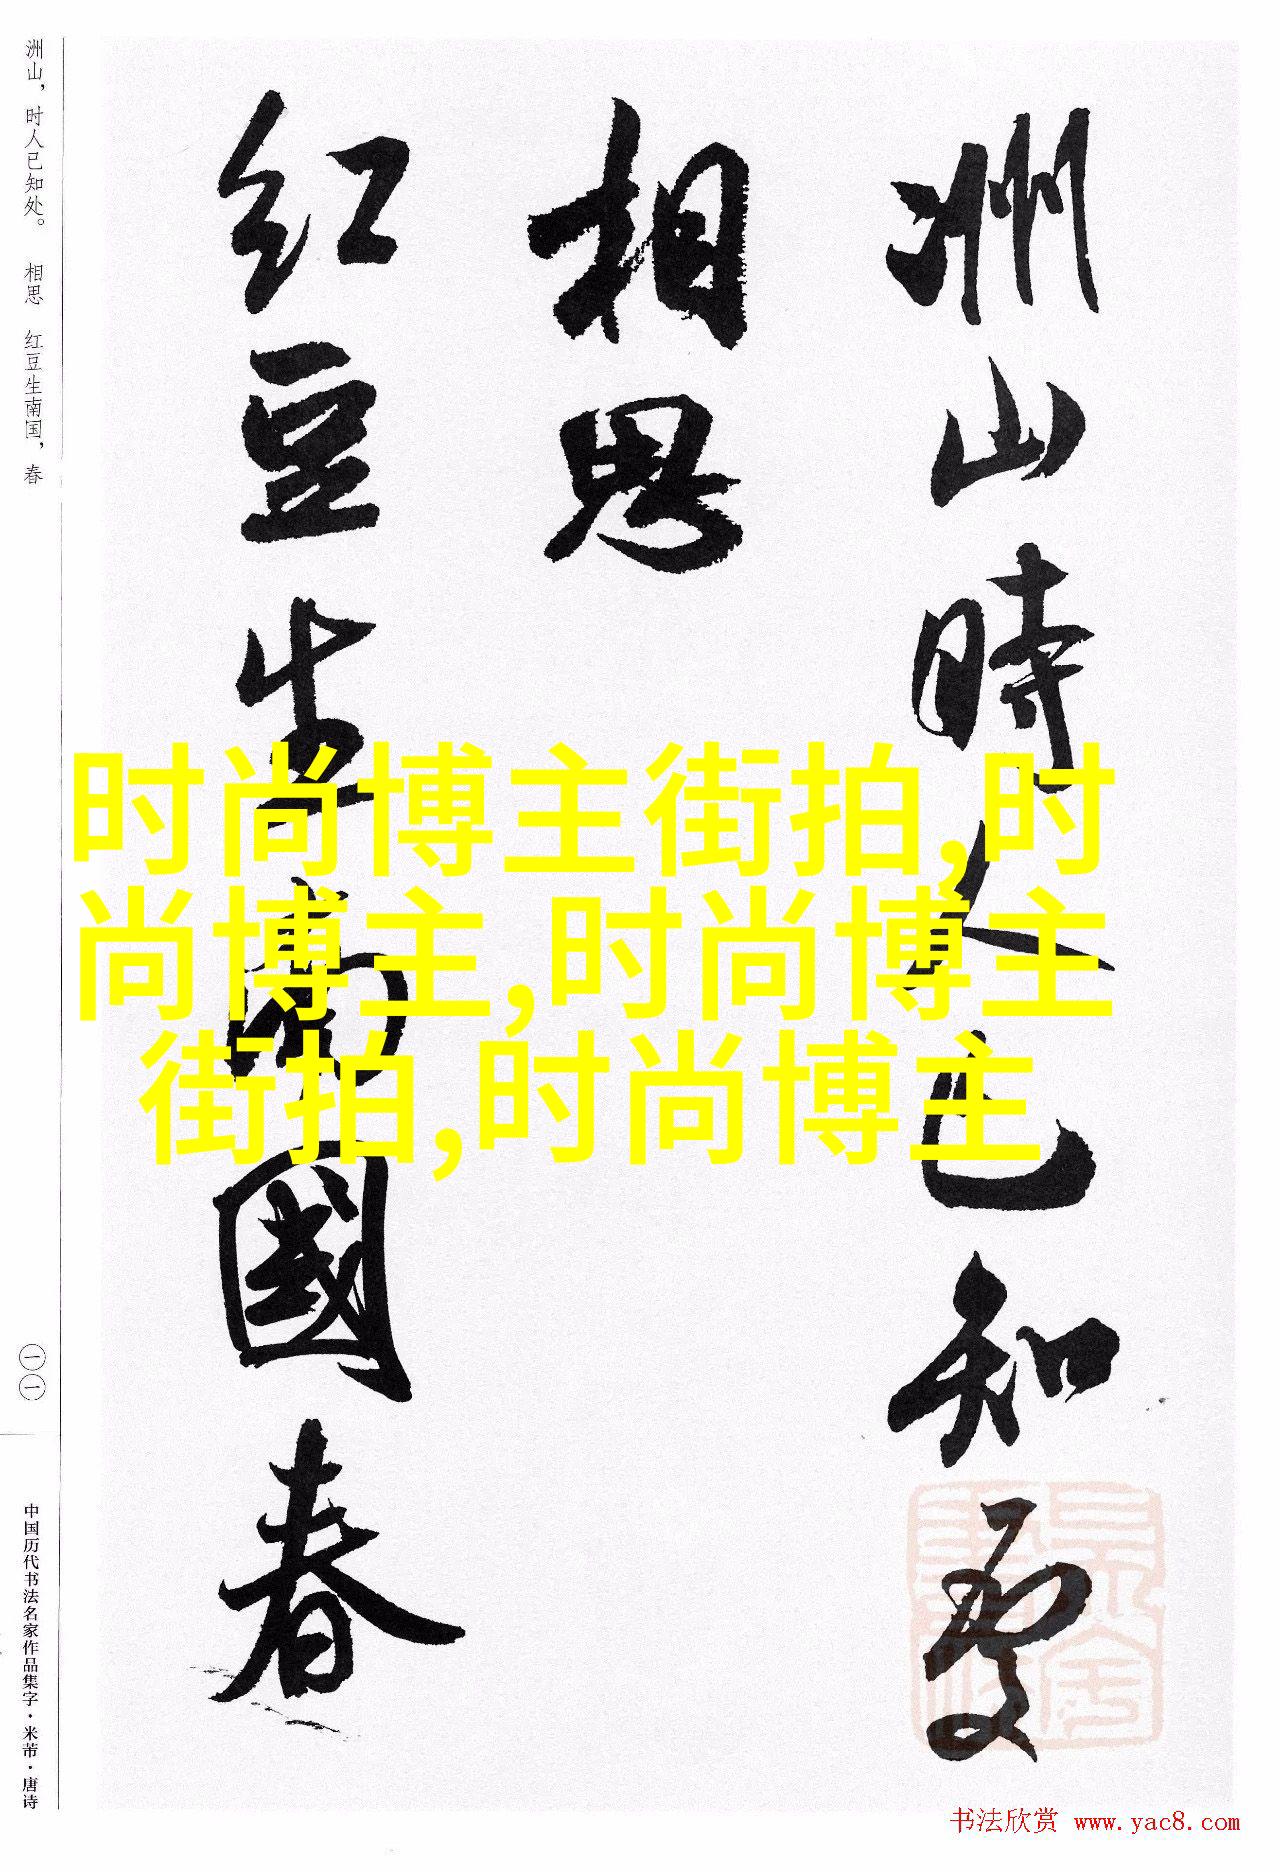 洲山，时人已知处。 相思 红豆生南国，春
洲山時人已知處
相思
红豆生南國春
时尚博主街拍,时
尚博主,时尚博主
街拍,时尚博主
一一
中国历代书法名家作品集字·米芾·唐诗
书法欣赏 www.yac8.com